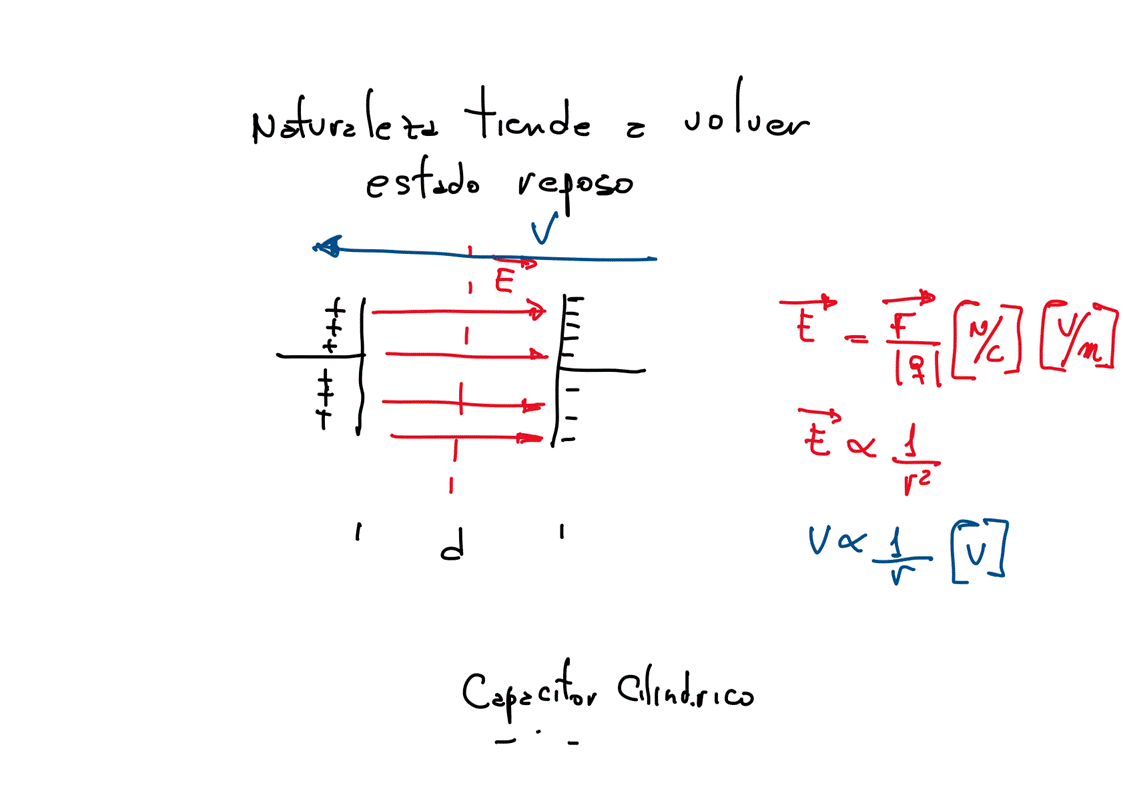 Naturaleza tiende a volver
estado reposo
V
E
+ + +
+ + +
E = F/|q| [N/C] [V/m]
E ∝ 1/r²
V ∝ 1/r [V]
d
Capacitor Cilindrico